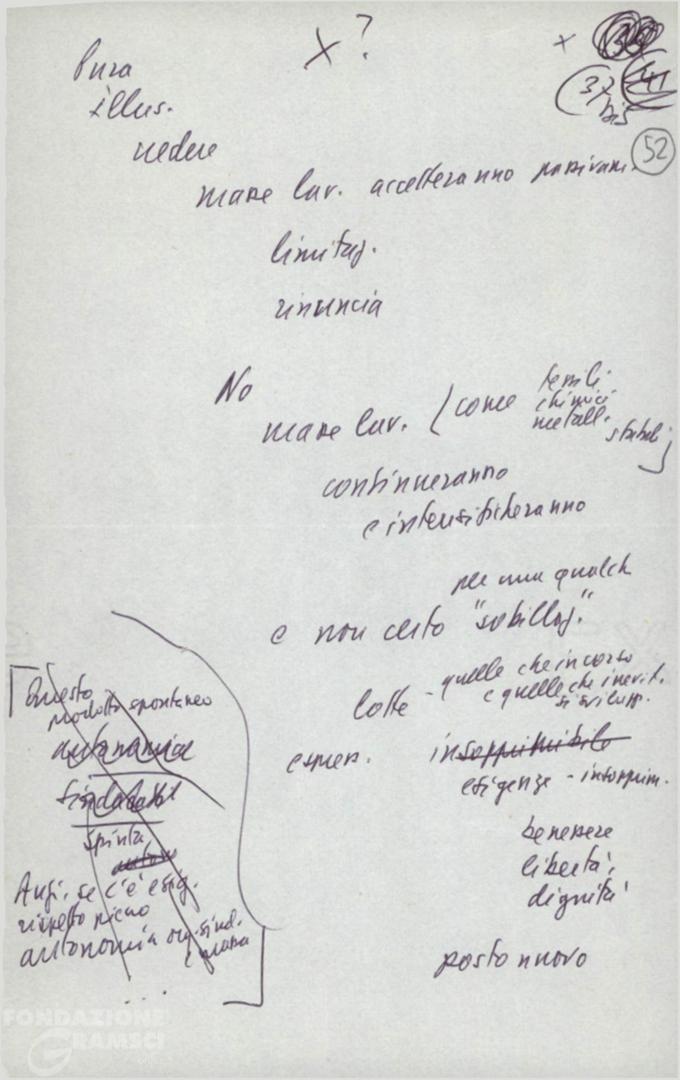 x ?
x
37 bis
52
Pura
illus.
vedere
masse lav. accetteranno passivam.
limitaz.
rinuncia
No
masse lav. (come tessili
chimici
metall.
continueranno
e intensificheranno
per una qualch
e non certo "sobillaz."
Lotte - quelle che in corso
e quelle che inevit.
si svilupp.
espress. insopprimibile
esigenze - insopprim.
benessere
libertà,
dignità
posto nuovo
Questo
prodotto spontaneo
autonomia
sindacati
spinta
Anzi, se c'è esig.
rispetto pieno
autonomia org. sind.
...
FONDAZIONE
GRAMSCI